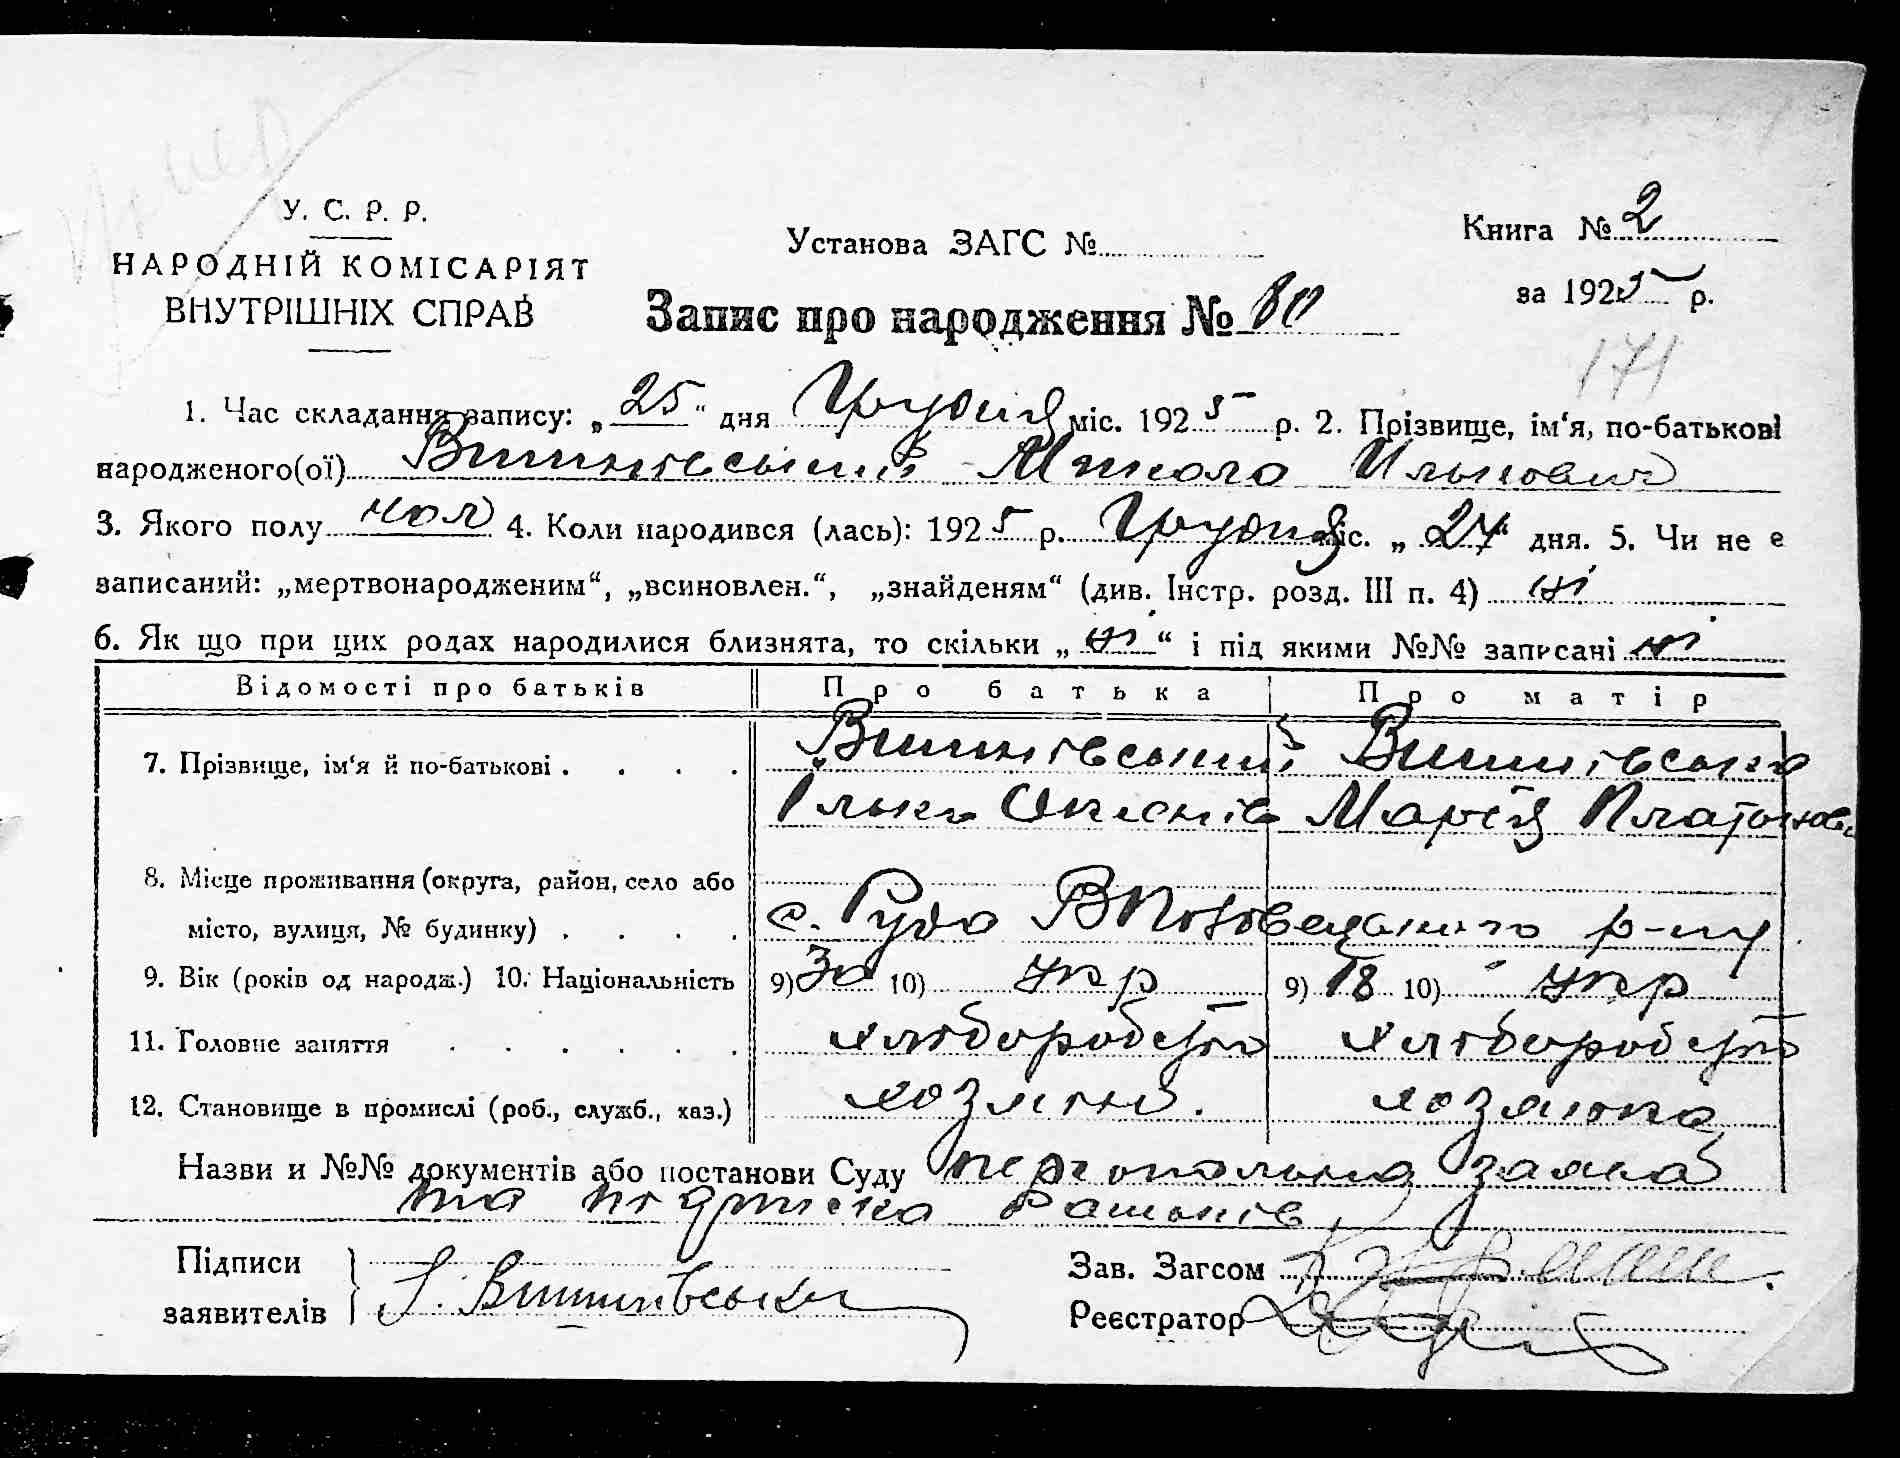 У. С. Р. Р.
НАРОДНІЙ КОМІСАРІЯТ
ВНУТРІШНІХ СПРАВ
Установа ЗАГС №
Книга № 2
за 1925 р.
Запис про народження № 80
171
1. Час складання запису: „25“ дня Грудня міс. 1925 р. 2. Прізвище, ім‘я, по-батькові
народженого(ої) Вишнівський Микола Ількович
3. Якого полу чол 4. Коли народився (лась): 1925 р. Грудня міс. „24“ дня. 5. Чи не є
записаний: „мертвонародженим“, „всиновлен.“, „знайденям“ (див. Інстр. розд. III п. 4) ні
6. Як що при цих родах народилися близнята, то скільки „ні“ і під якими №№ записані ні
Відомості про батьків Про батька Про матір
7. Прізвище, ім‘я й по-батькові . . . . Вишнівський Вишнівська
Ілько Марія Платонов
8. Місце проживання (округа, район, село або
місто, вулиця, № будинку) . . . . с. Руда р-ну
9. Вік (років од народж.) 10. Національність 9) 30 10) укр 9) 18 10) укр
11. Головне заняття . . . . . . хліборобство хліборобство
12. Становище в промислі (роб., служб., хаз.) хозяїн. хозяйка
Назви и №№ документів або постанови Суду персональна заява
та підписка батьків
Підписи
заявителів І. Вишнівський
Зав. Загсом
Реєстратор